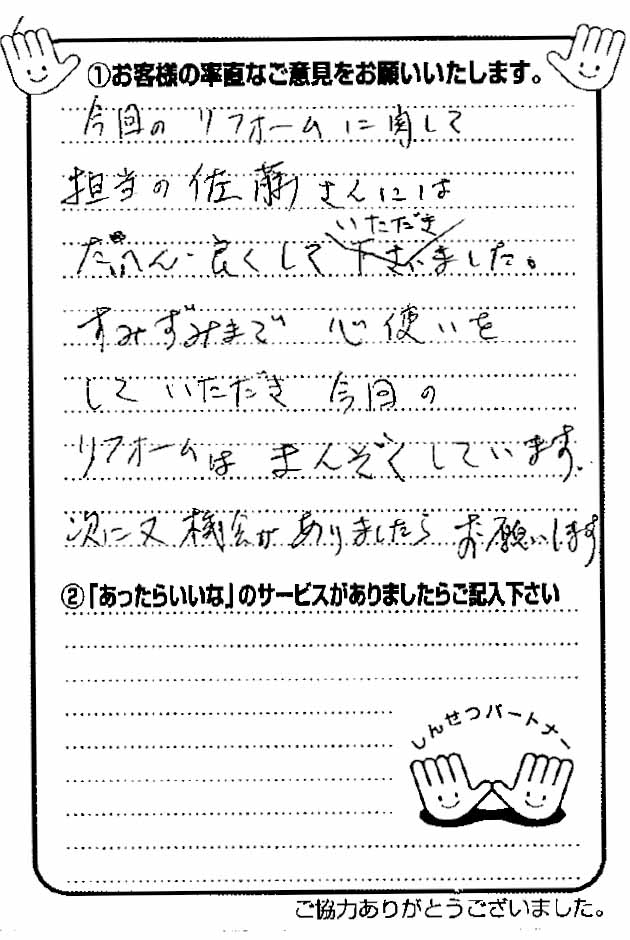 ①お客様の率直なご意見をお願いいたします。
今回のリフォームに関して
担当の佐藤さんには
いただき
たいへん良くして下さいました。
すみずみまで 心使いを
していただき 今回の
リフォームは まんぞくしています。
次に又 機会がありましたら お願いします
②「あったらいいな」のサービスがありましたらご記入下さい
しんせつパートナー
ご協力ありがとうございました。